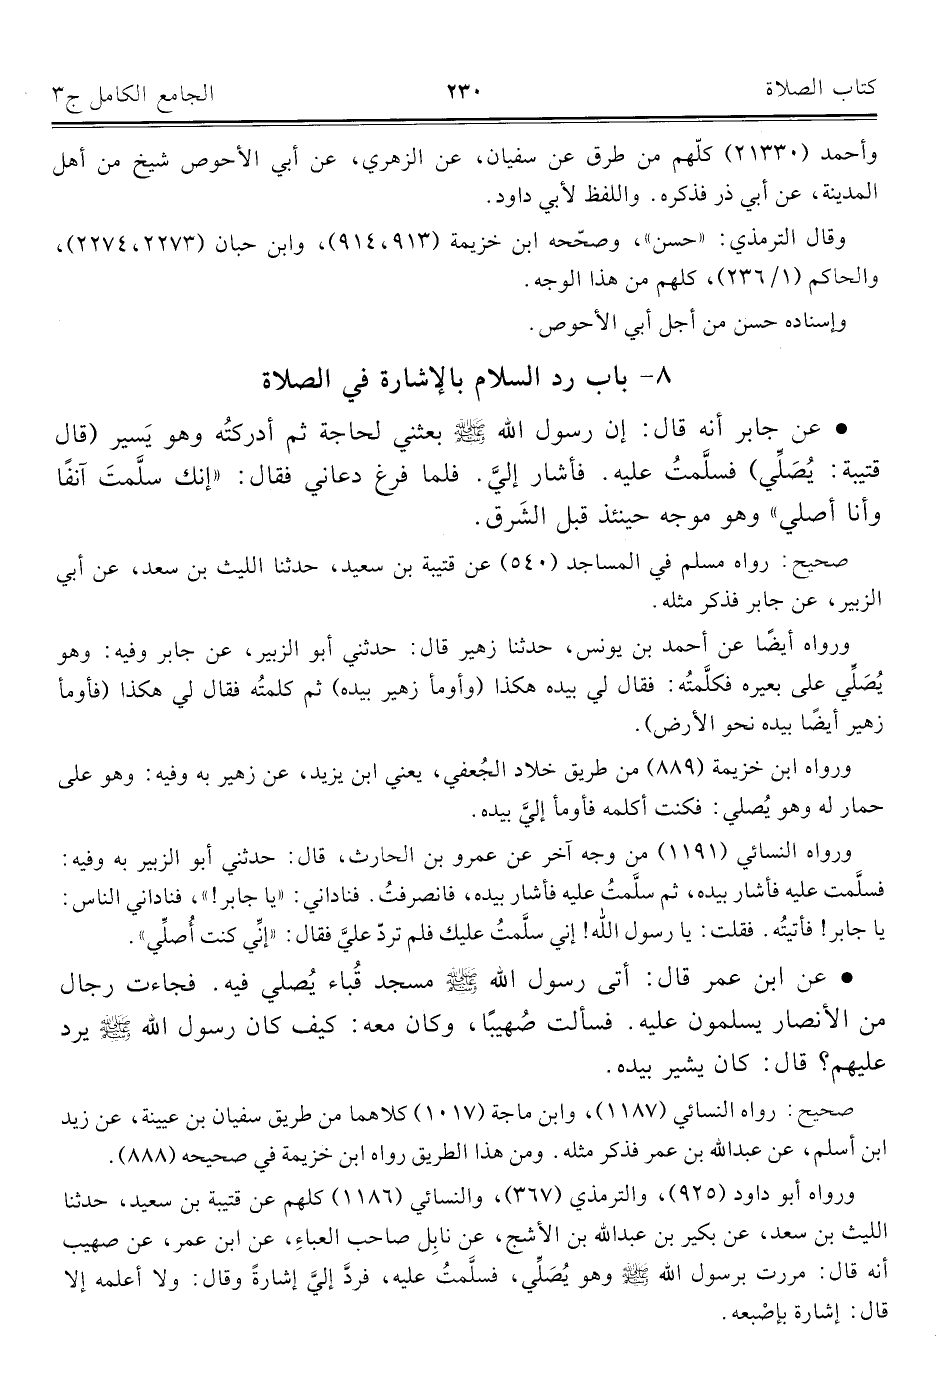 كتاب الصلاة ٢٣٠ الجامع الكامل ج٣
وأحمد (٢١٣٣٠) كلّهم من طرق عن سفيان، عن الزهري، عن أبي الأحوص شيخ من أهل
المدينة، عن أبي ذر فذكره. واللفظ لأبي داود.
وقال الترمذي: «حسن»، وصحّحه ابن خزيمة (٩١٤،٩١٣)، وابن حبان (٢٢٧٤،٢٢٧٣)،
والحاكم (٢٣٦/١)، كلهم من هذا الوجه.
وإسناده حسن من أجل أبي الأحوص.
٨- باب رد السلام بالإشارة في الصلاة
• عن جابر أنه قال: إن رسول الله ﷺ بعثني لحاجة ثم أدركتُه وهو يَسير (قال
قتيبة: يُصَلِّي) فسلَّمتُ عليه. فأشار إليَّ. فلما فرغ دعاني فقال: «إنك سلَّمتَ آنفًا
وأنا أصلي» وهو موجه حينئذ قبل الشَرق.
صحيح: رواه مسلم في المساجد (٥٤٠) عن قتيبة بن سعيد، حدثنا الليث بن سعد، عن أبي
الزبير، عن جابر فذكر مثله.
ورواه أيضًا عن أحمد بن يونس، حدثنا زهير قال: حدثني أبو الزبير، عن جابر وفيه: وهو
يُصَلِّي على بعيره فكلَّمتُه: فقال لي بيده هكذا (وأومأ زهير بيده) ثم كلمتُه فقال لي هكذا (فأومأ
زهير أيضًا بيده نحو الأرض).
ورواه ابن خزيمة (٨٨٩) من طريق خلاد الجُعفي، يعني ابن يزيد، عن زهير به وفيه: وهو على
حمار له وهو يُصلي: فكنت أكلمه فأومأ إليَّ بيده.
ورواه النسائي (١١٩١) من وجه آخر عن عمرو بن الحارث، قال: حدثني أبو الزبير به وفيه:
فسلَّمت عليه فأشار بيده، ثم سلَّمتُ عليه فأشار بيده، فانصرفتُ. فناداني: «يا جابر!»، فناداني الناس:
يا جابر! فأتيتُه. فقلت: يا رسول الله! إني سلَّمتُ عليك فلم تردّ عليَّ فقال: «إنِّي كنت أُصلِّي».
• عن ابن عمر قال: أتى رسول الله ﷺ مسجد قُباء يُصلي فيه. فجاءت رجال
من الأنصار يسلمون عليه. فسألت صُهيبًا، وكان معه: كيف كان رسول الله ﷺ يرد
عليهم؟ قال: كان يشير بيده.
صحيح: رواه النسائي (١١٨٧)، وابن ماجة (١٠١٧) كلاهما من طريق سفيان بن عيينة، عن زيد
ابن أسلم، عن عبدالله بن عمر فذكر مثله. ومن هذا الطريق رواه ابن خزيمة في صحيحه (٨٨٨).
ورواه أبو داود (٩٢٥)، والترمذي (٣٦٧)، والنسائي (١١٨٦) كلهم عن قتيبة بن سعيد، حدثنا
الليث بن سعد، عن بكير بن عبدالله بن الأشج، عن نابِل صاحب العباءِ، عن ابن عمر، عن صهيب
أنه قال: مررت برسول الله ﷺ وهو يُصَلِّي، فسلَّمتُ عليه، فردَّ إليَّ إشارةً وقال: ولا أعلمه إلا
قال: إشارة بإصْبعه.